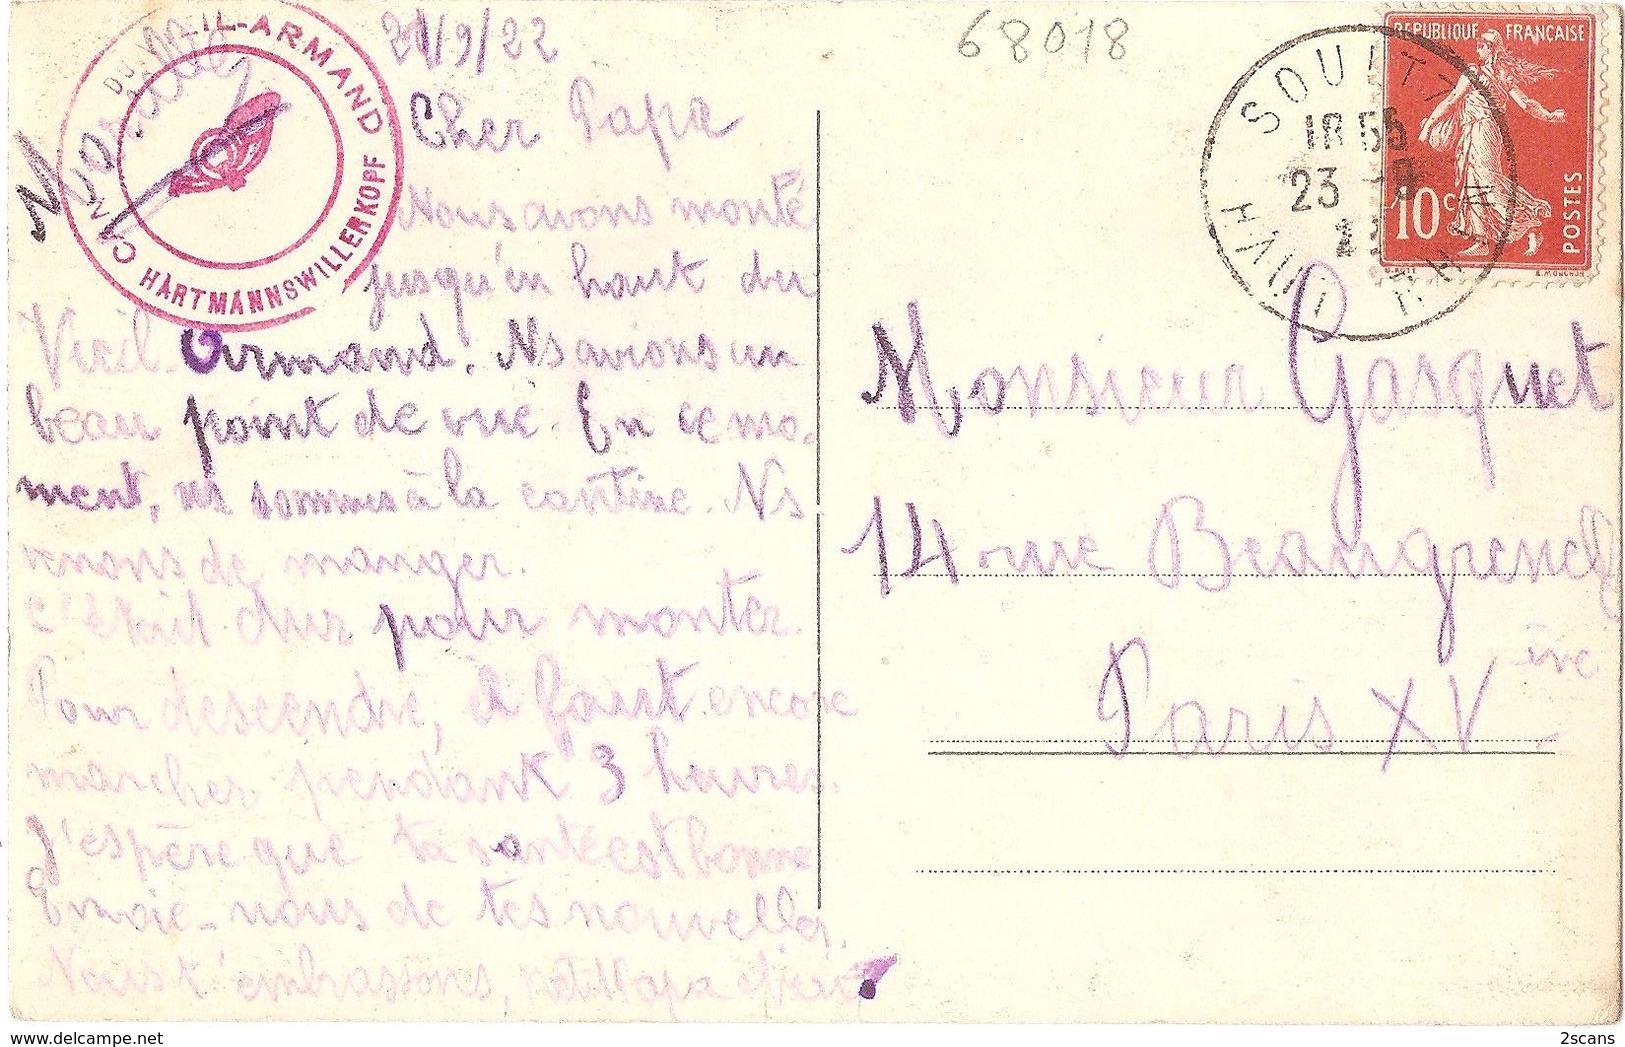 21/9/22
68018
CAN DU IL-ARMAND
HARTMANNSWILLERKOPF
Cher Papa
Nous avons monté
jusqu'en haut du
Vieil-Armand. Ns avions un
beau point de vue. En ce mo-
ment, ns sommes à la cantine. Ns
venons de manger.
C'était dur pour monter.
Pour descendre, il faut encore
marcher pendant 3 heures.
J'espère que ta santé est bonne
Envoie-nous de tes nouvelles.
Nous t'embrassons, petit Papa chéri
REPUBLIQUE FRANÇAISE
10 c
POSTES
SOULTZ
18 55
23
HAUT RHIN
Monsieur Gasquet
14 rue Beaugrenelle
Paris XVème
2scans